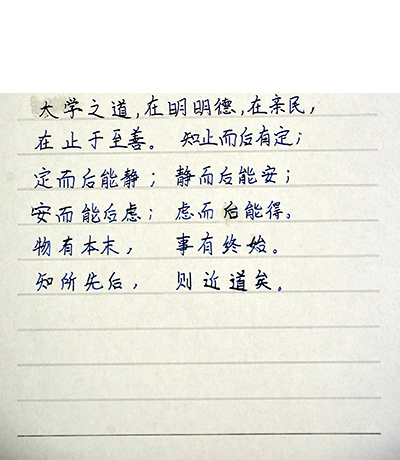 大学之道,在明明德,在亲民,
在止于至善。 知止而后有定;
定而后能静; 静而后能安;
安而能后虑; 虑而后能得。
物有本末, 事有终始。
知所先后, 则近道矣。